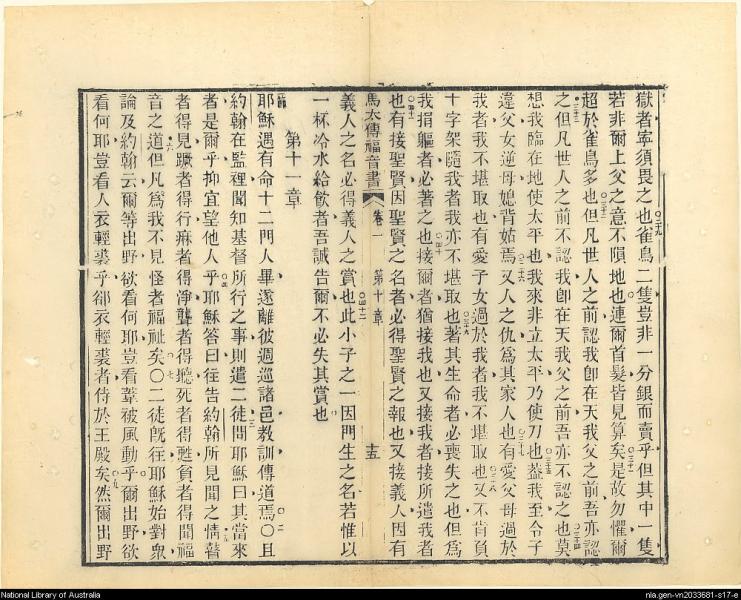 獄者寧須畏之也雀鳥二隻豈非一分銀而賣乎但其中一隻
若非爾上父之意不隕地也連爾首髮皆見算矣是故勿懼爾
超於雀鳥多也但凡世人之前認我卽在天我父之前吾亦認
之但凡世人之前不認我卽在天我父之前吾亦不認之也莫
想我臨在地使太平也我來非立太平乃使刀也蓋我至令子
違父女逆母媳背姑焉又人之仇爲其家人也有愛父母過於
我者我不堪取也有愛子女過於我者我不堪取也又不肯負
十字架隨我者我亦不堪取也著其生命者必喪失之也但爲
我捐軀者必著之也接爾者猶接我也又接我者接所遣我者
也有接聖賢因聖賢之名者必得聖賢之報也又接義人因有
馬太傳福音書 卷一 第十章 十五
義人之名必得義人之賞也此小子之一因門生之名若惟以
一杯冷水給飲者吾誠告爾不必失其賞也
第十一章
耶穌遇有命十二門人畢遂離彼週巡諸邑敎訓傳道焉〇且
約翰在監裡聞知基督所行之事則遣二徒問耶穌曰其當來
者是爾乎抑宜望他人乎耶穌答曰往告約翰所見聞之情瞽
者得見蹶者得行痳者得淨聾者得聽死者得甦貧者得聞福
音之道但凡爲我不見怪者福祉矣〇二徒旣往耶穌始對衆
論及約翰云爾等出野欲看何耶豈看葦被風動乎爾出野欲
看何耶豈看人衣輕裘乎卻衣輕裘者侍於王殿矣然爾出野
National Library of Australia
nla.gen-vn2033681-s17-e